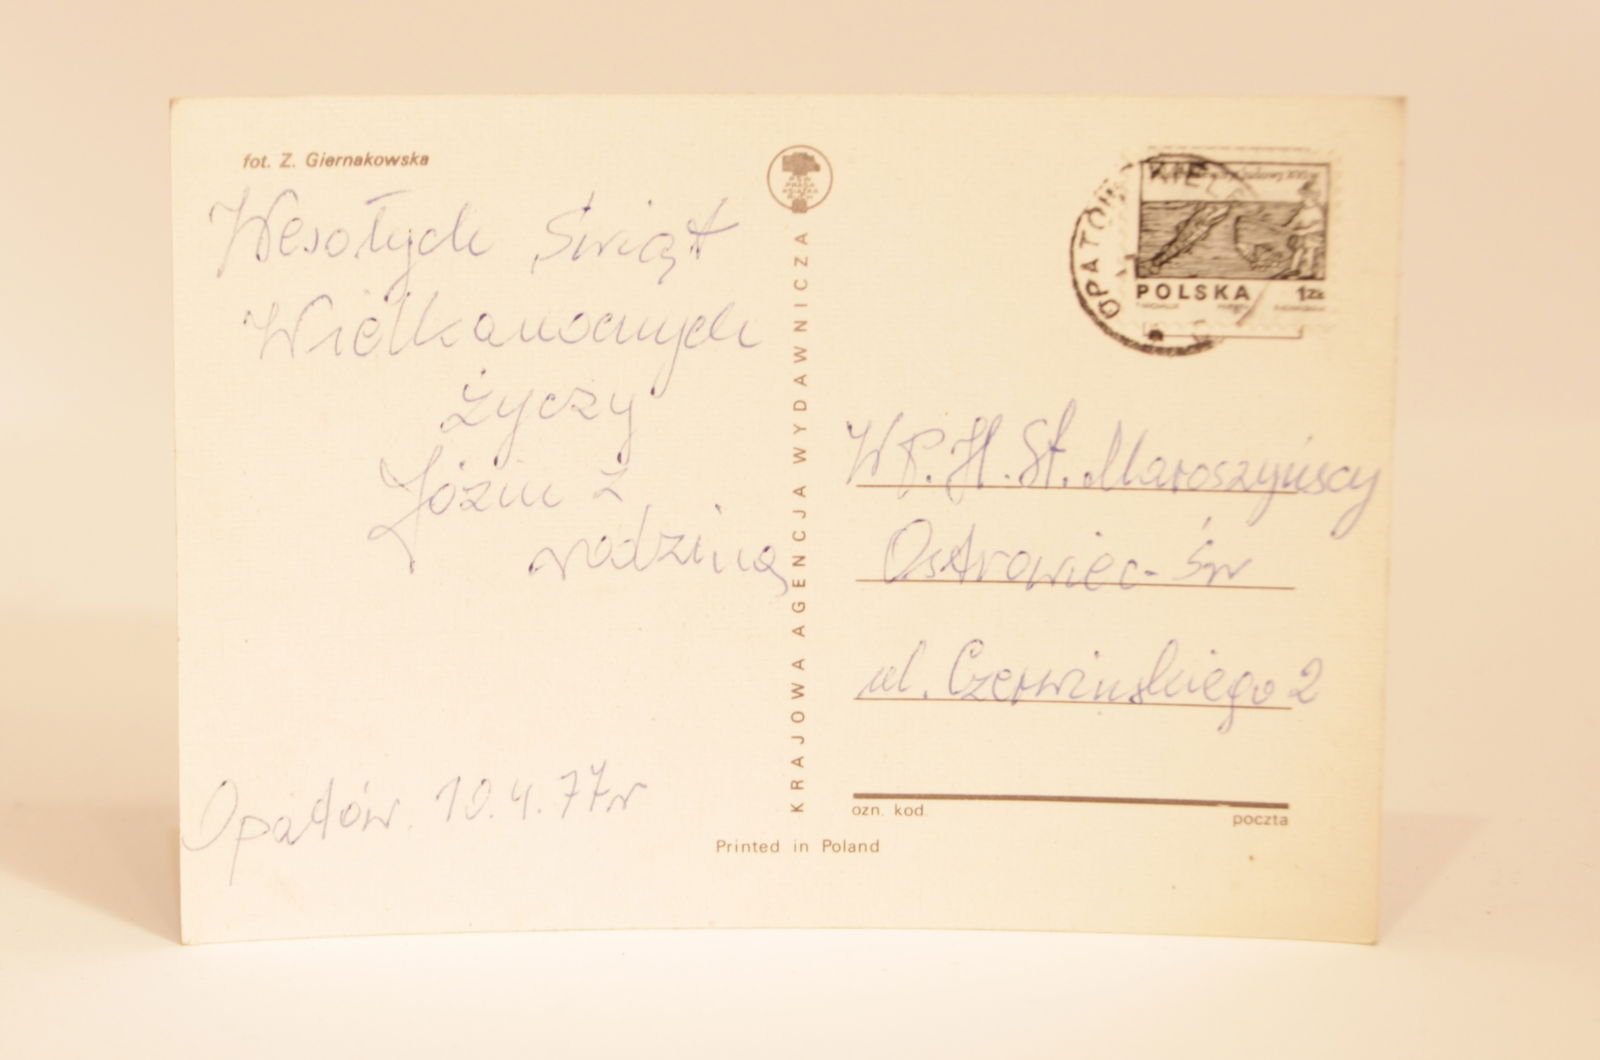 fot. Z. Giernakowska
Wesołych Świąt
Wielkanocnych
życzy
Józiu z
rodziną
Opatów. 10.4.77r
KRAJOWA AGENCJA WYDAWNICZA
Printed in Poland
OPATÓW
KIEL
POLSKA 1ZŁ
WP. H. St. Maroszyńscy
Ostrowiec-Św
ul. Czerwinskiego 2
ozn. kod
poczta